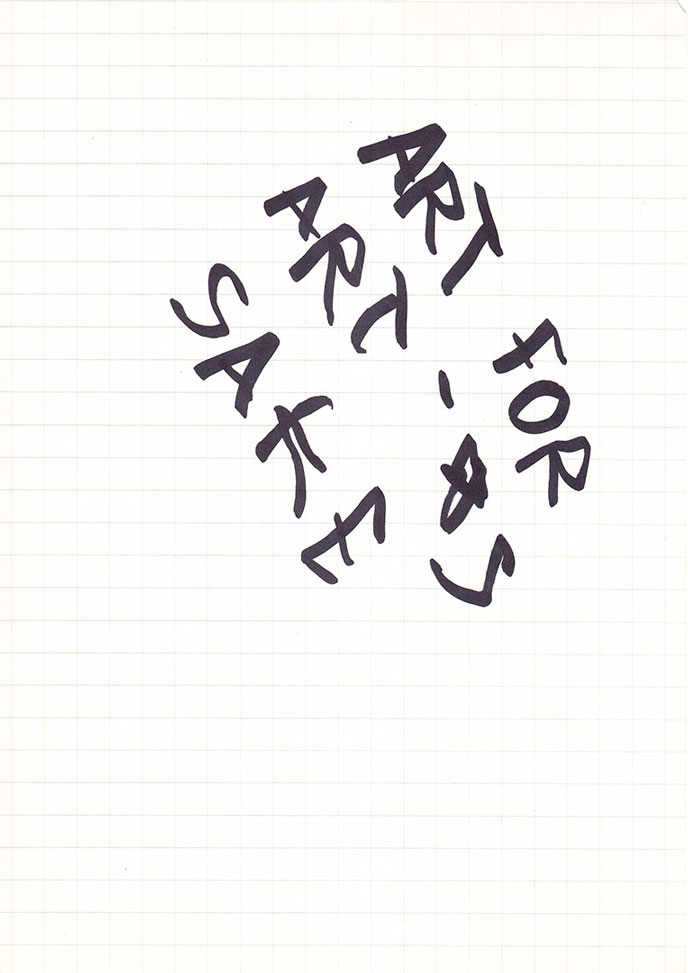 ART FOR
ART - S
SAKE